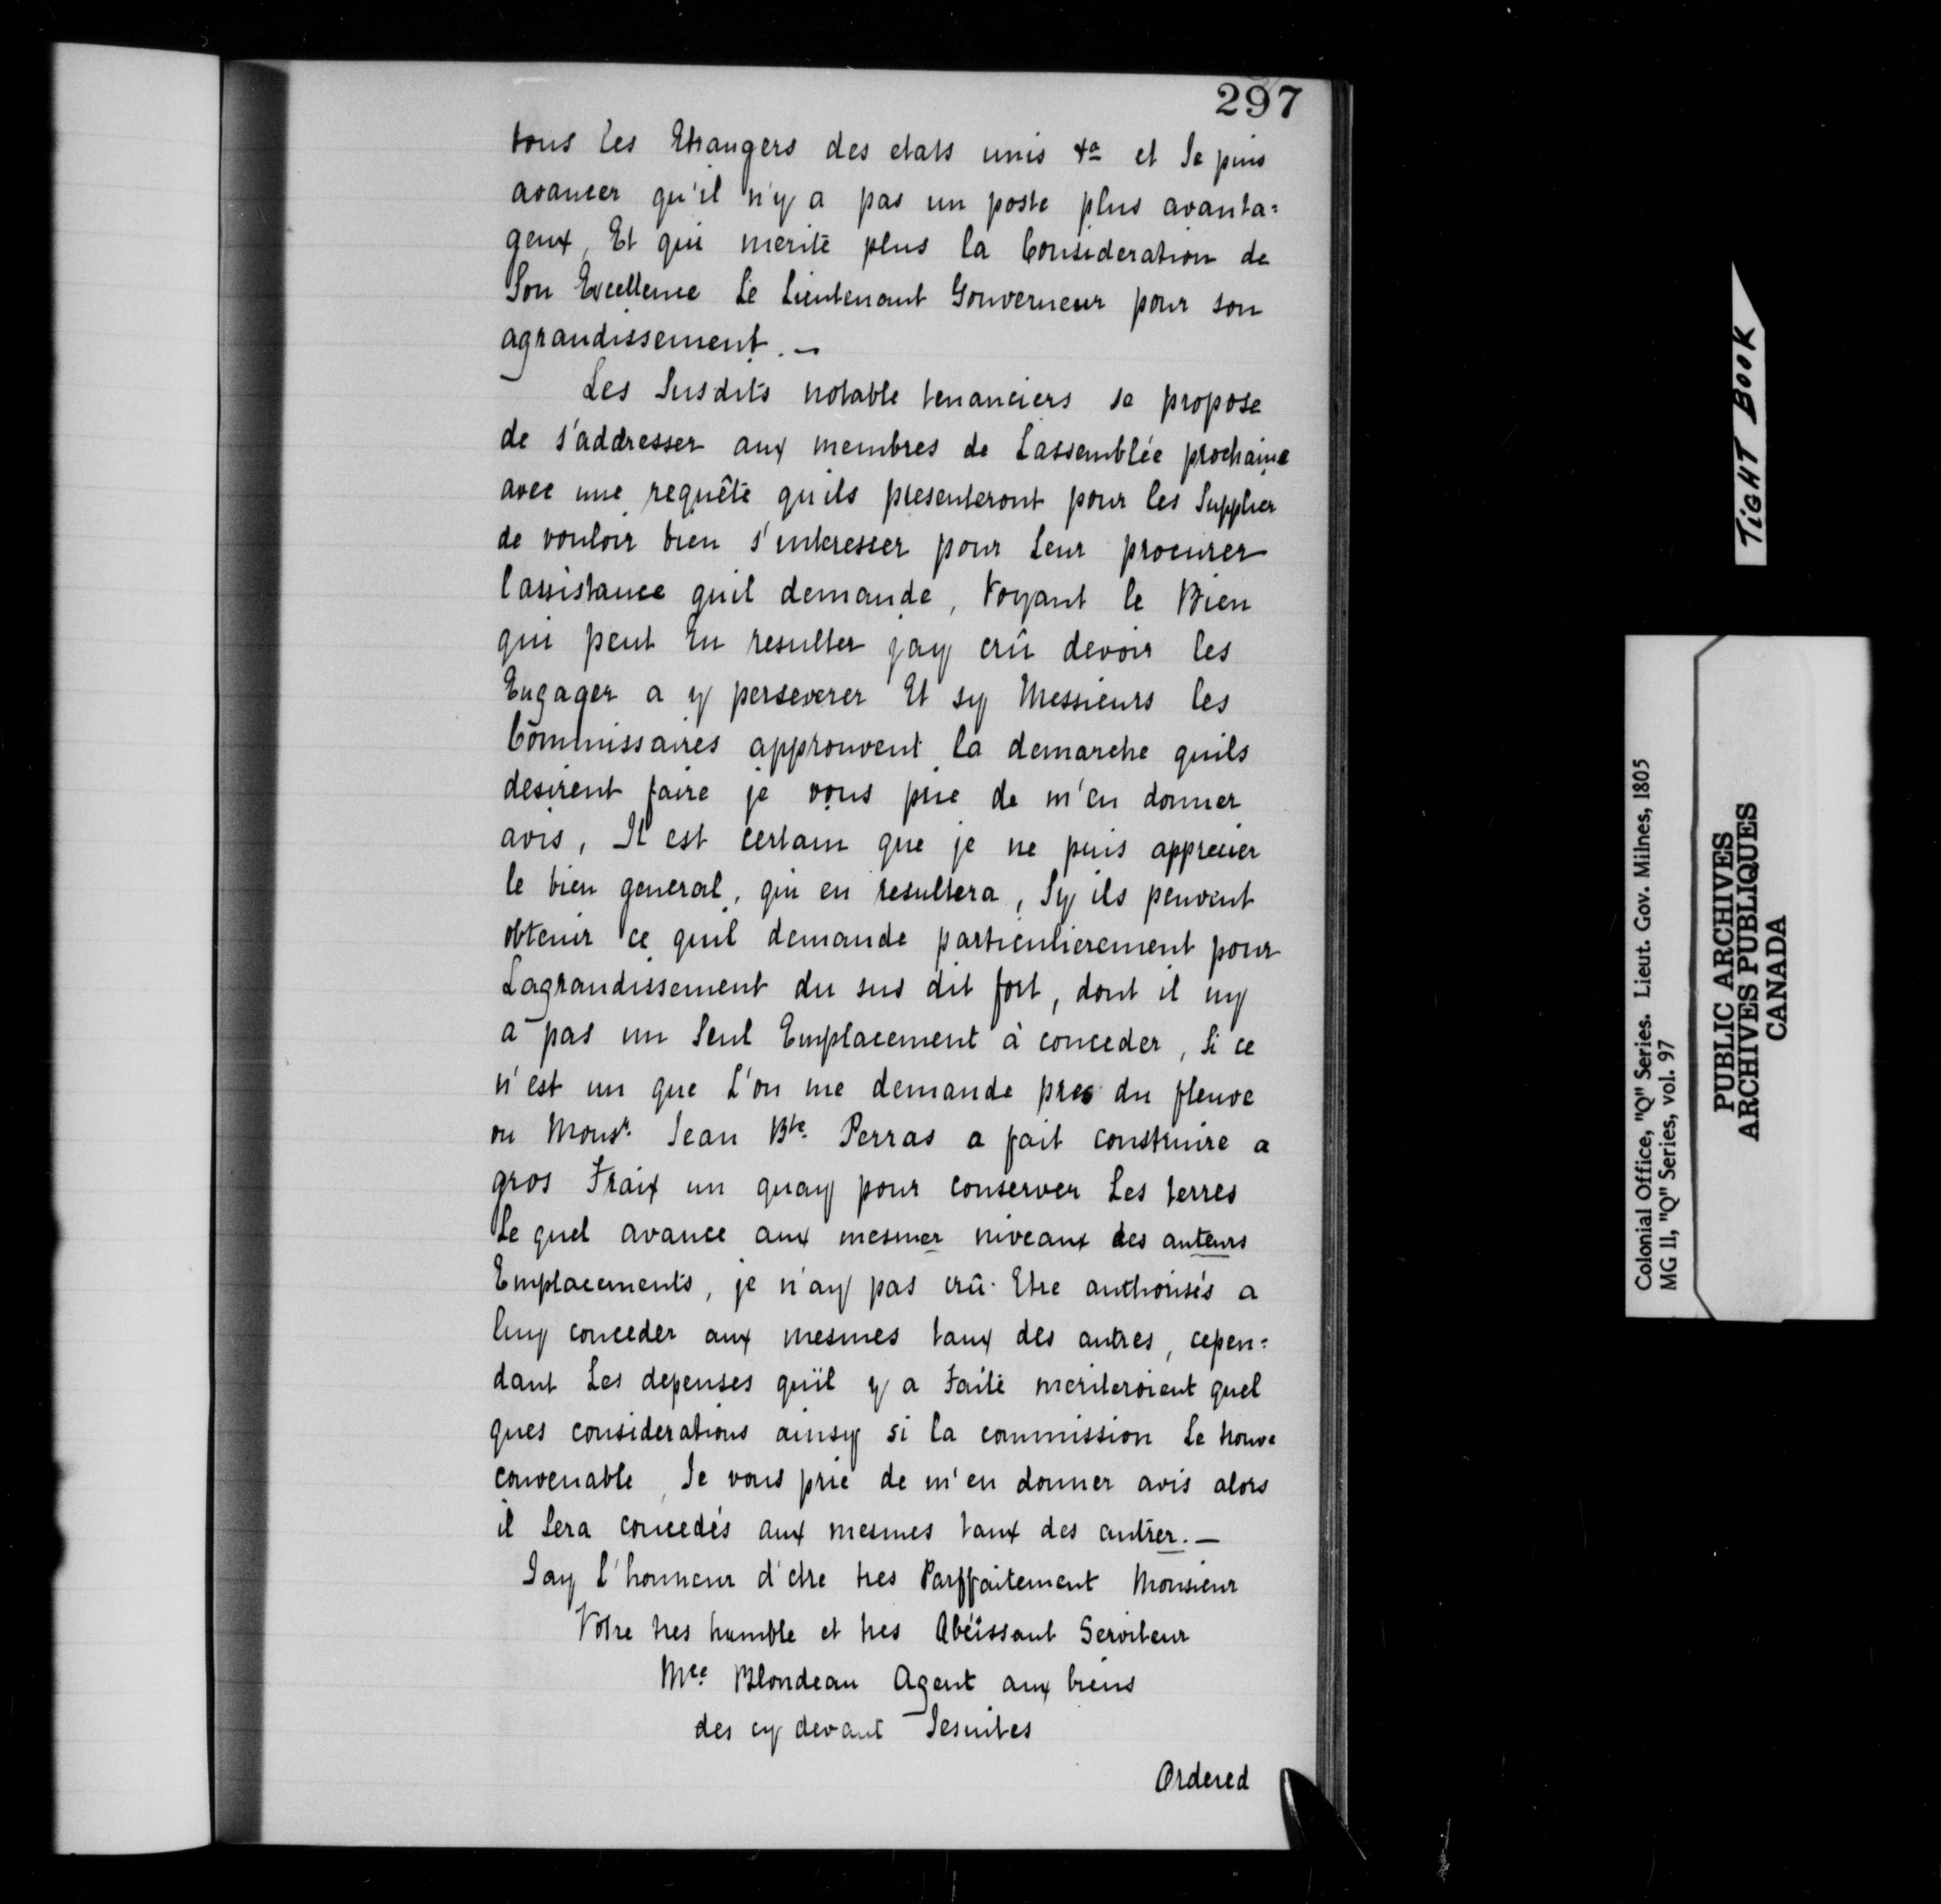 297
tous les Etrangers des etats unis &a et Je puis
avancer qu'il n'y a pas un poste plus avanta=
geux, Et qui merite plus la Consideration de
Son Excellence Le Lieutenant Gouverneur pour son
agrandissement. —
Les Susdits notable tenanciers se propose
de s'addresser aux membres de Lassemblée prochaine
avec une requête quils presenteront pour les Supplier
de vouloir bien s'interesser pour Leur procurer
l'assistance quil demande, Voyant le Bien
qui peut En resulter jay crû devoir les
Engager a y perseverer Et sy Messieurs les
Commissaires approuvent la demarche quils
desirent faire je vous prie de m'en donner
avis, Il est certain que je ne puis apprecier
le bien general, qui en resultera, Sy ils peuvent
obtenir ce quil demande particulierement pour
Lagrandissement du sus dit fort, dont il ny
a pas un Seul Emplacement à conceder, Si ce
n'est un que L'on me demande pres du fleuve
ou Monsr. Jean Bte. Perras a fait construire a
gros Fraix un quay pour conserver Les terres
Le quel avance aux mesmer niveaux des auteurs
Emplacements, je n'ay pas crû Etre authorisés a
luy conceder aux mesmes taux des autres, cepen=
dant Les depenses quïl y a Faite meriteroient quel
ques considerations ainsy si la commission Le trouve
convenable, Je vous prie de m'en donner avis alors
il Sera concedés aux mesmes taux des autrer. —
Jay L'honneur d'etre tres Parffaitement Monsieur
Votre tres humble et tres Obéissant Serviteur
Mce. Blondeau Agent aux biens
des cy devant Jesuites
Ordered
TIGHT BOOK
Colonial Office, "Q" Series. Lieut. Gov. Milnes, 1805
MG 11, "Q" Series, vol. 97
PUBLIC ARCHIVES
ARCHIVES PUBLIQUES
CANADA